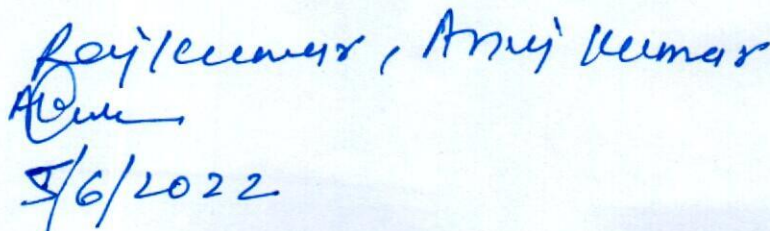 Rajkumar, Anuj Kumar
5/6/2022